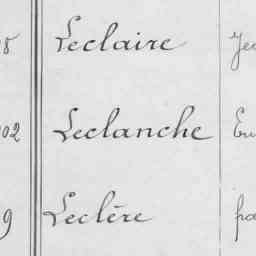 Leclaire
02 Leclanche
9 Leclère